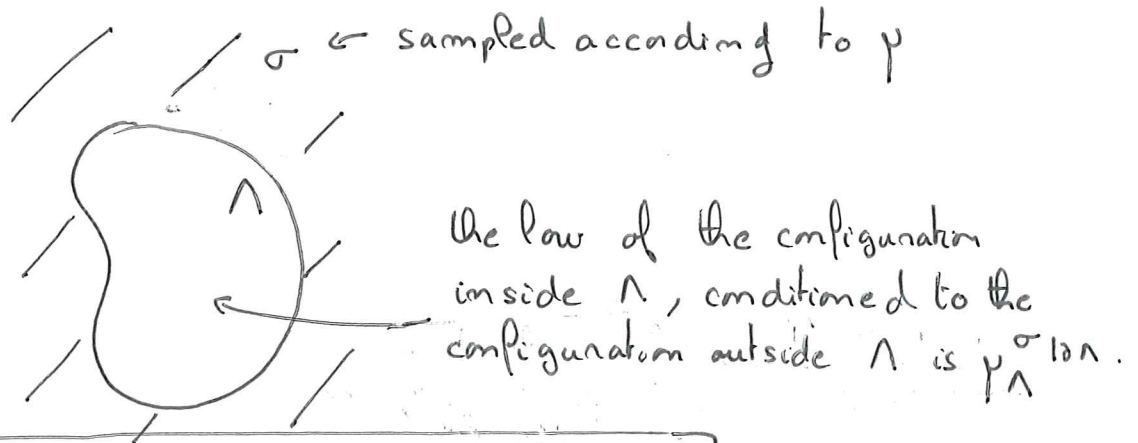 σ ← sampled according to μ
Λ
the law of the configuration
inside Λ, conditioned to the
configuration outside Λ is μ_Λ^{σ|∂Λ}.